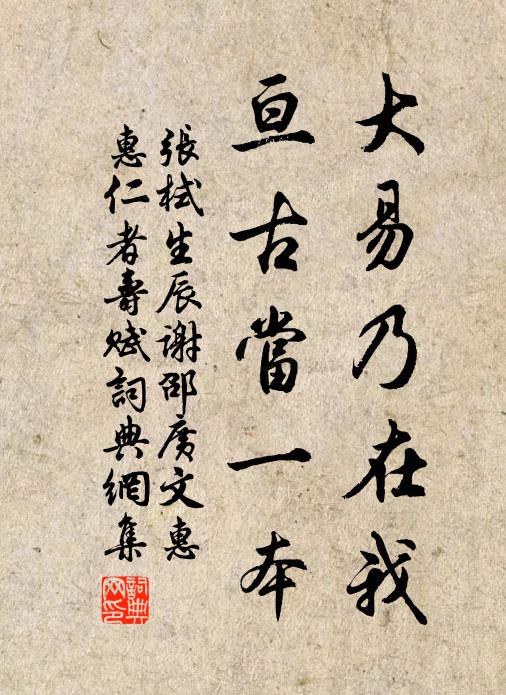 大易乃在我
亘古當一本
張栻生辰謝邵廣文惠
惠仁者壽賦詞典網集
詞典網印